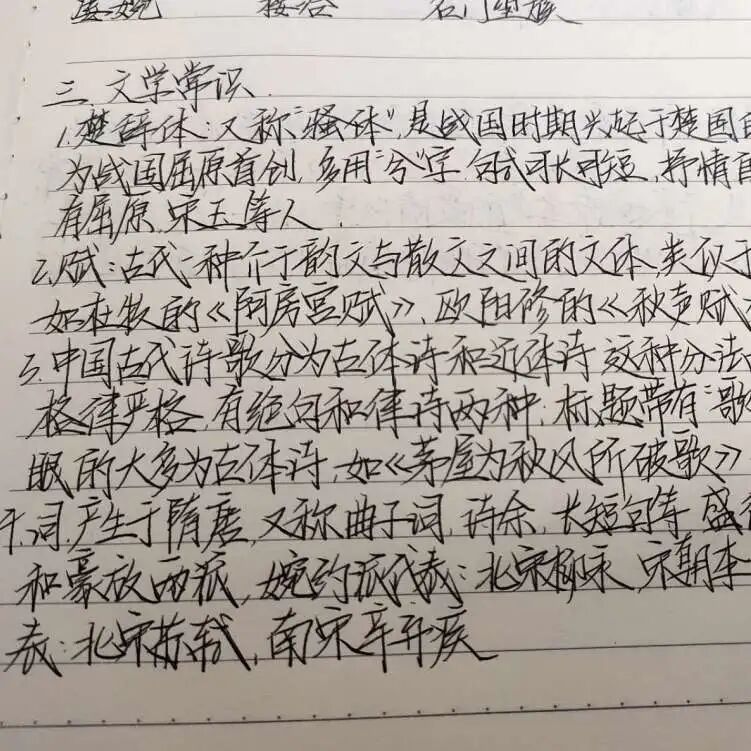 婉
三、文学常识
1.楚辞体:又称“骚体”,是战国时期兴起于楚国
为战国屈原首创,多用“兮”字,句式可长可短,抒情
有屈原、宋玉等人
2.赋:古代一种介于韵文与散文之间的文体,类似于
如杜牧的《阿房宫赋》,欧阳修的《秋声赋》
3.中国古代诗歌分为古体诗和近体诗,这种分法
格律严格,有绝句和律诗两种;标题带有“歌
眼的大多为古体诗,如《茅屋为秋风所破歌》
词,产生于隋唐,又称曲子词,诗余,长短句等,盛
和豪放两派,婉约派代表:北宋柳永,宋朝李
表:北宋苏轼,南宋辛弃疾